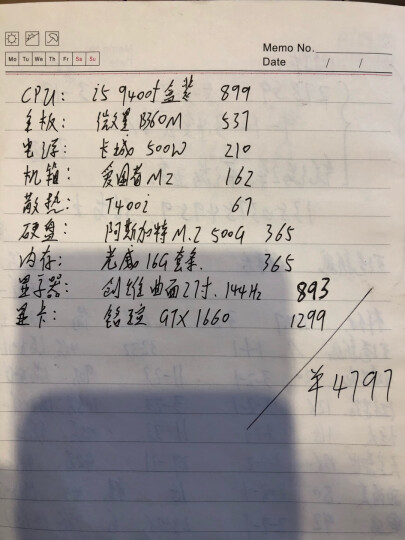 Memo No.
Mo Tu We Th Fr Sa Su
Date / /
CPU: i5 9400f 盒装 899
主板: 微星 B360M 537
电源: 长城 500W 210
机箱: 爱国者 M2 162
散热: T400i 67
硬盘: 阿斯加特 M.2 500G 365
内存: 光威 16G 套条 365
显示器: 创维曲面27寸.144Hz 893
显卡: 铭瑄 GTX 1660 1299
¥4797